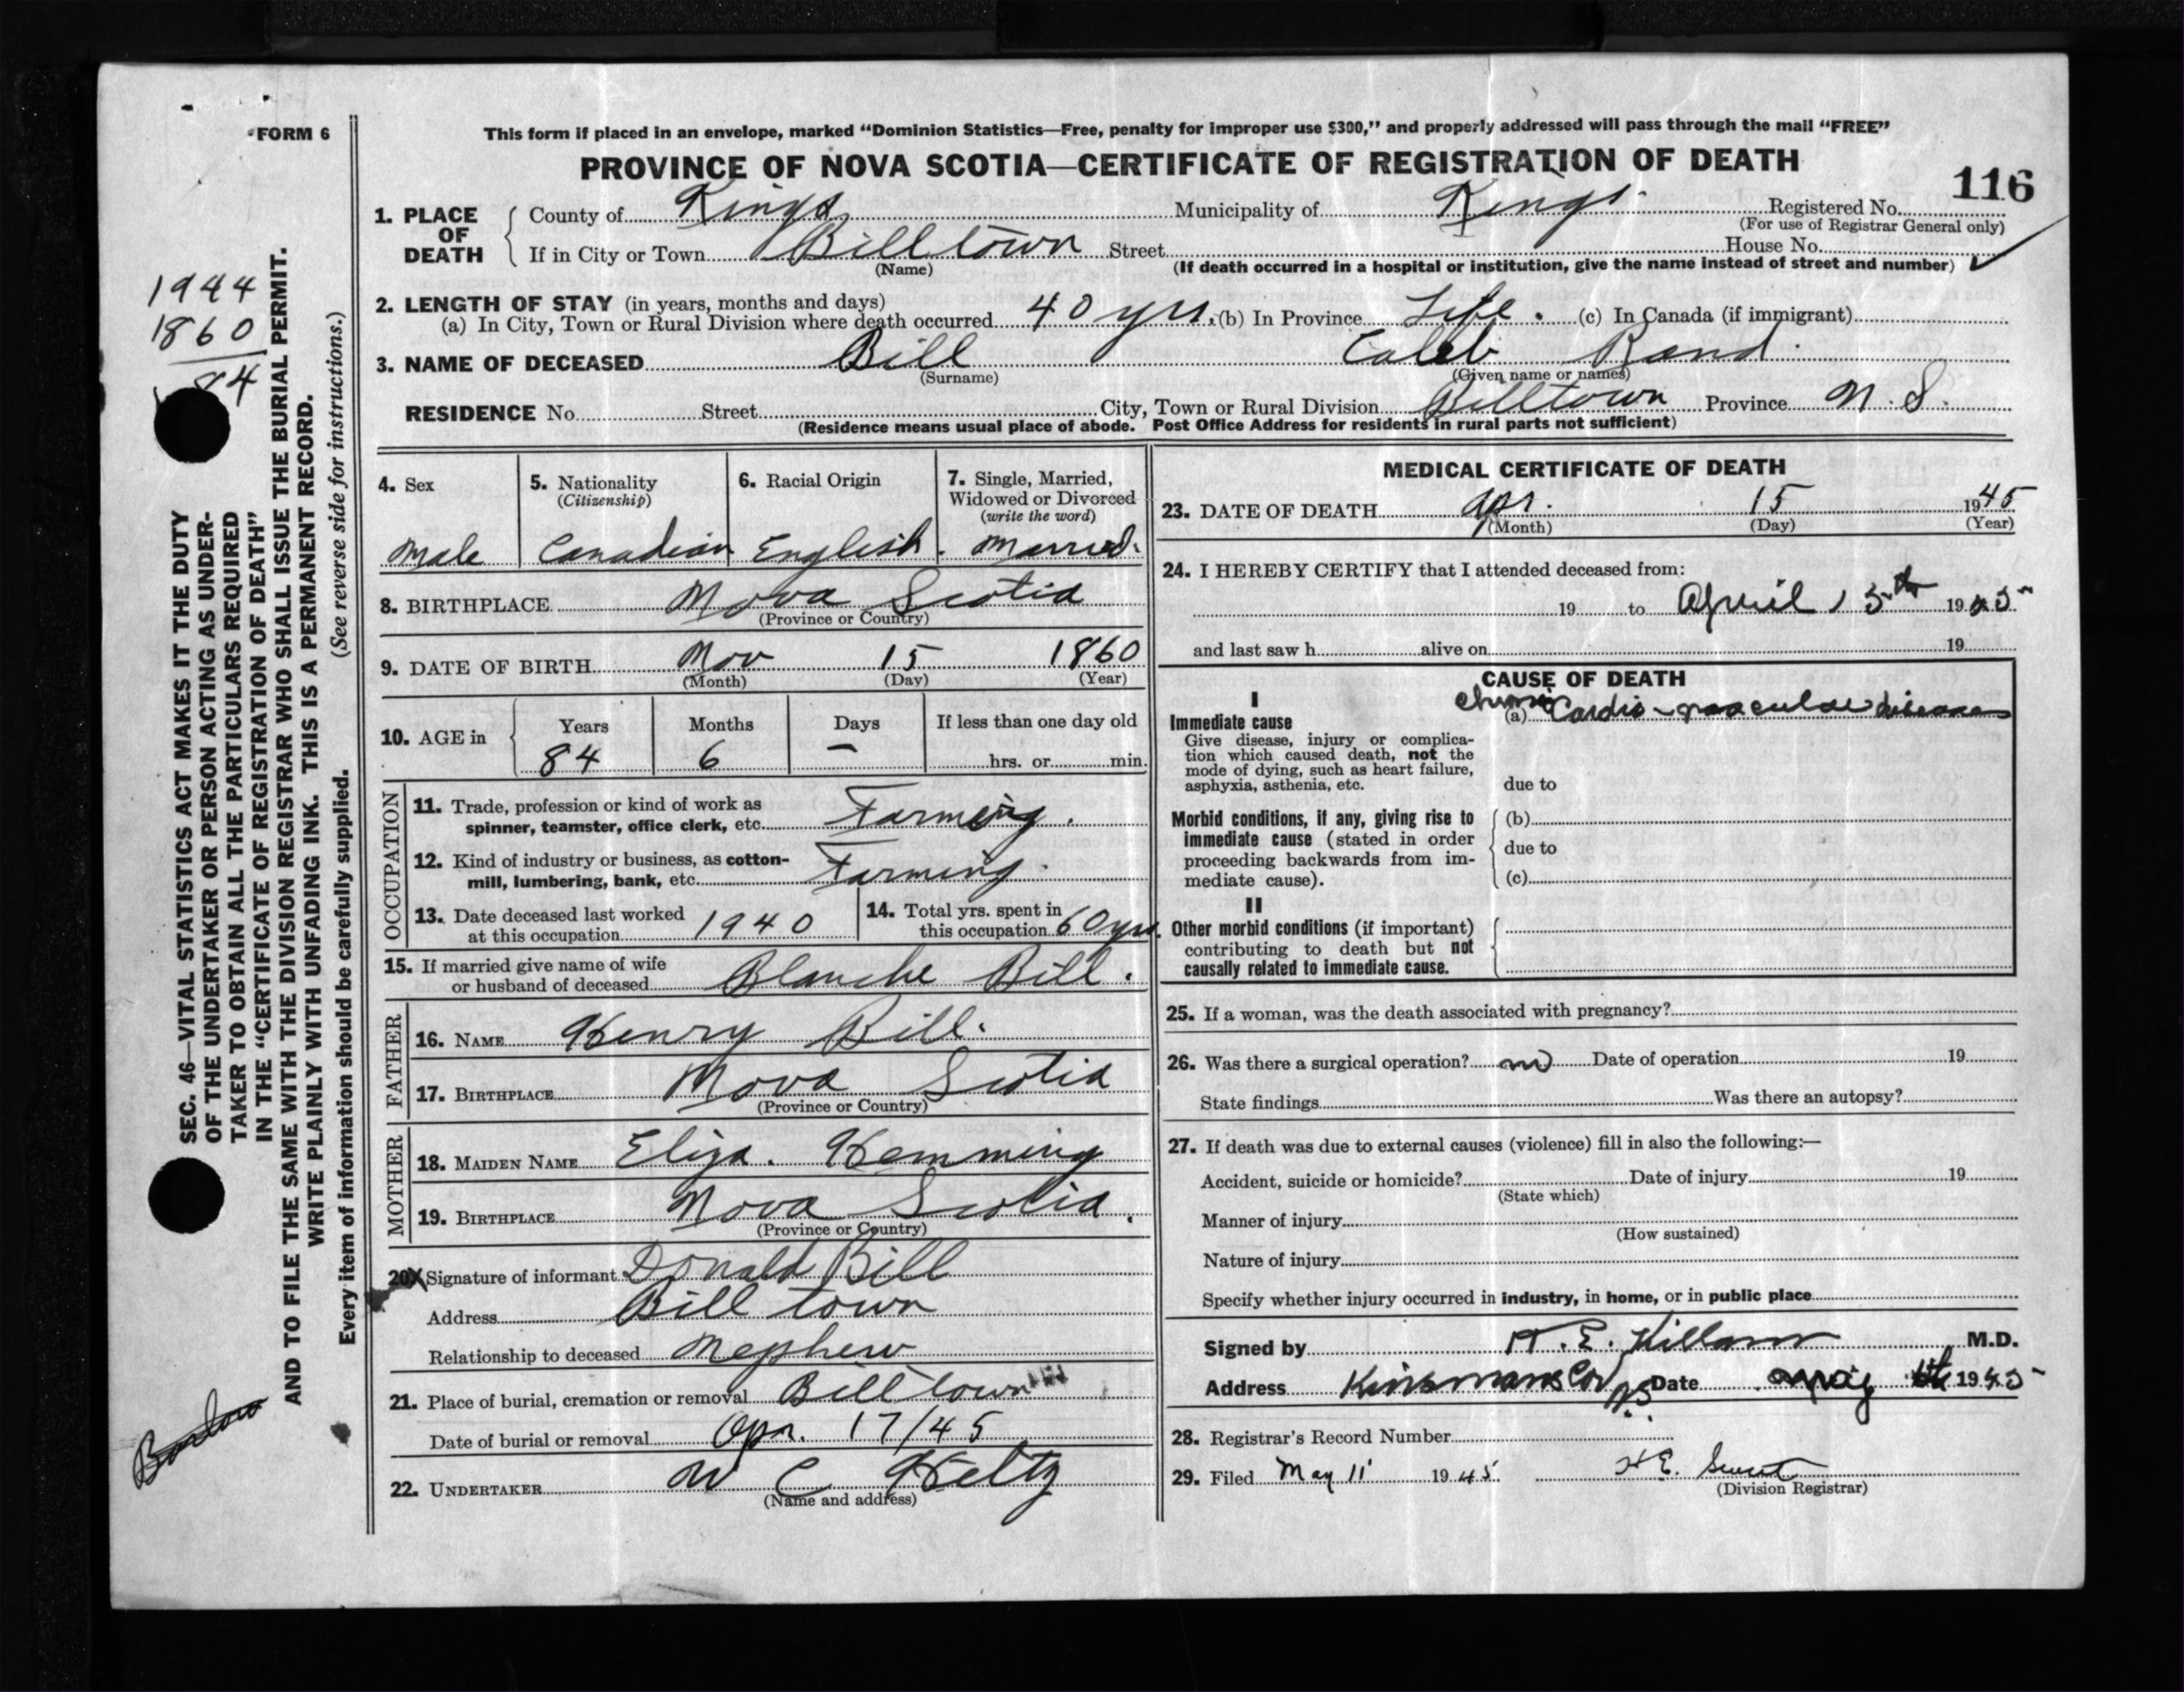 FORM 6
This form if placed in an envelope, marked "Dominion Statistics—Free, penalty for improper use $300," and properly addressed will pass through the mail "FREE"
PROVINCE OF NOVA SCOTIA—CERTIFICATE OF REGISTRATION OF DEATH
116
1. PLACE OF DEATH
County of Kings Municipality of Kings Registered No.
(For use of Registrar General only)
If in City or Town Billtown Street House No.
(Name) (If death occurred in a hospital or institution, give the name instead of street and number)
2. LENGTH OF STAY (in years, months and days)
(a) In City, Town or Rural Division where death occurred 40 yrs. (b) In Province Life. (c) In Canada (if immigrant)
3. NAME OF DECEASED Bill Caleb Rand.
(Surname) (Given name or names)
RESIDENCE No. Street City, Town or Rural Division Billtown Province N.S.
(Residence means usual place of abode. Post Office Address for residents in rural parts not sufficient)
1944
1860
84
SEC. 46—VITAL STATISTICS ACT MAKES IT THE DUTY
OF THE UNDERTAKER OR PERSON ACTING AS UNDER-
TAKER TO OBTAIN ALL THE PARTICULARS REQUIRED
IN THE "CERTIFICATE OF REGISTRATION OF DEATH"
AND TO FILE THE SAME WITH THE DIVISION REGISTRAR WHO SHALL ISSUE THE BURIAL PERMIT.
WRITE PLAINLY WITH UNFADING INK. THIS IS A PERMANENT RECORD.
Every item of information should be carefully supplied. (See reverse side for instructions.)
4. Sex 5. Nationality 6. Racial Origin 7. Single, Married,
(Citizenship) Widowed or Divorced
(write the word)
Male Canadian English. Married.
8. BIRTHPLACE Nova Scotia
(Province or Country)
9. DATE OF BIRTH Nov 15 1860
(Month) (Day) (Year)
10. AGE in Years Months Days If less than one day old
84 6 — hrs. or min.
OCCUPATION
11. Trade, profession or kind of work as
spinner, teamster, office clerk, etc. Farming.
12. Kind of industry or business, as cotton-
mill, lumbering, bank, etc. Farming.
13. Date deceased last worked
at this occupation 1940
14. Total yrs. spent in
this occupation 60 yrs.
15. If married give name of wife
or husband of deceased Blanche Bill.
FATHER
16. NAME Henry Bill.
17. BIRTHPLACE Nova Scotia
(Province or Country)
MOTHER
18. MAIDEN NAME Eliza. Hemming
19. BIRTHPLACE Nova Scotia.
(Province or Country)
20X Signature of informant Donald Bill
Address Bill town
Relationship to deceased Nephew
21. Place of burial, cremation or removal Billtown
Date of burial or removal Apr. 17/45
22. UNDERTAKER W C Hiltz
(Name and address)
MEDICAL CERTIFICATE OF DEATH
23. DATE OF DEATH Apr. 15 1945
(Month) (Day) (Year)
24. I HEREBY CERTIFY that I attended deceased from:
19 to April 15th 1945
and last saw h alive on 19
CAUSE OF DEATH
I
Immediate cause (a) Chronic Cardio-vascular disease
Give disease, injury or complica-
tion which caused death, not the
mode of dying, such as heart failure,
asphyxia, asthenia, etc. due to
Morbid conditions, if any, giving rise to (b)
immediate cause (stated in order due to
proceeding backwards from im-
mediate cause). (c)
II
Other morbid conditions (if important)
contributing to death but not
causally related to immediate cause.
25. If a woman, was the death associated with pregnancy?
26. Was there a surgical operation? no Date of operation 19
State findings Was there an autopsy?
27. If death was due to external causes (violence) fill in also the following:—
Accident, suicide or homicide? Date of injury 19
(State which)
Manner of injury
(How sustained)
Nature of injury
Specify whether injury occurred in industry, in home, or in public place
Signed by H. E. Killam M.D.
Address Kinsmans Cor N.S. Date May 1945
28. Registrar's Record Number
29. Filed May 11 1945. H E.
(Division Registrar)